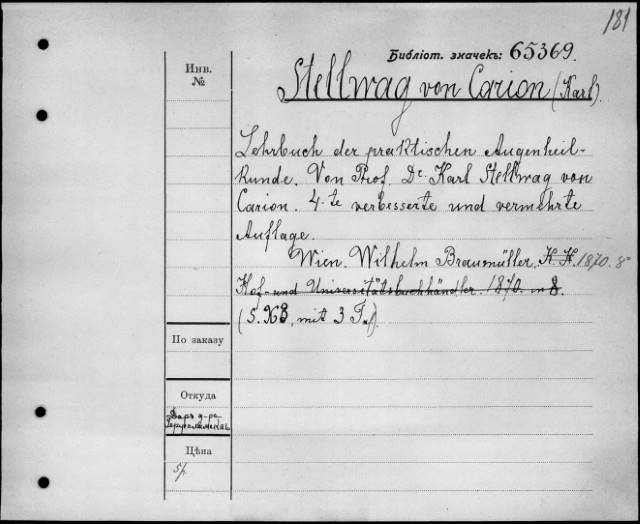 181
Библіот. значекъ: 65369.
Инв.
№
Stellwag von Carion (Karl).
Lehrbuch der praktischen Augenheil-
kunde. Von Prof. Dr. Karl Stellwag von
Carion. 4-te verbesserte und vermehrte
Auflage.
Wien. Wilhelm Braumüller. K. K. 1870. 8°
Hof- und Universitätsbuchhändler. 1870. in 8.
mit 3 Taf.
По заказу
Откуда
Даръ д-ра
Цѣна
5р.